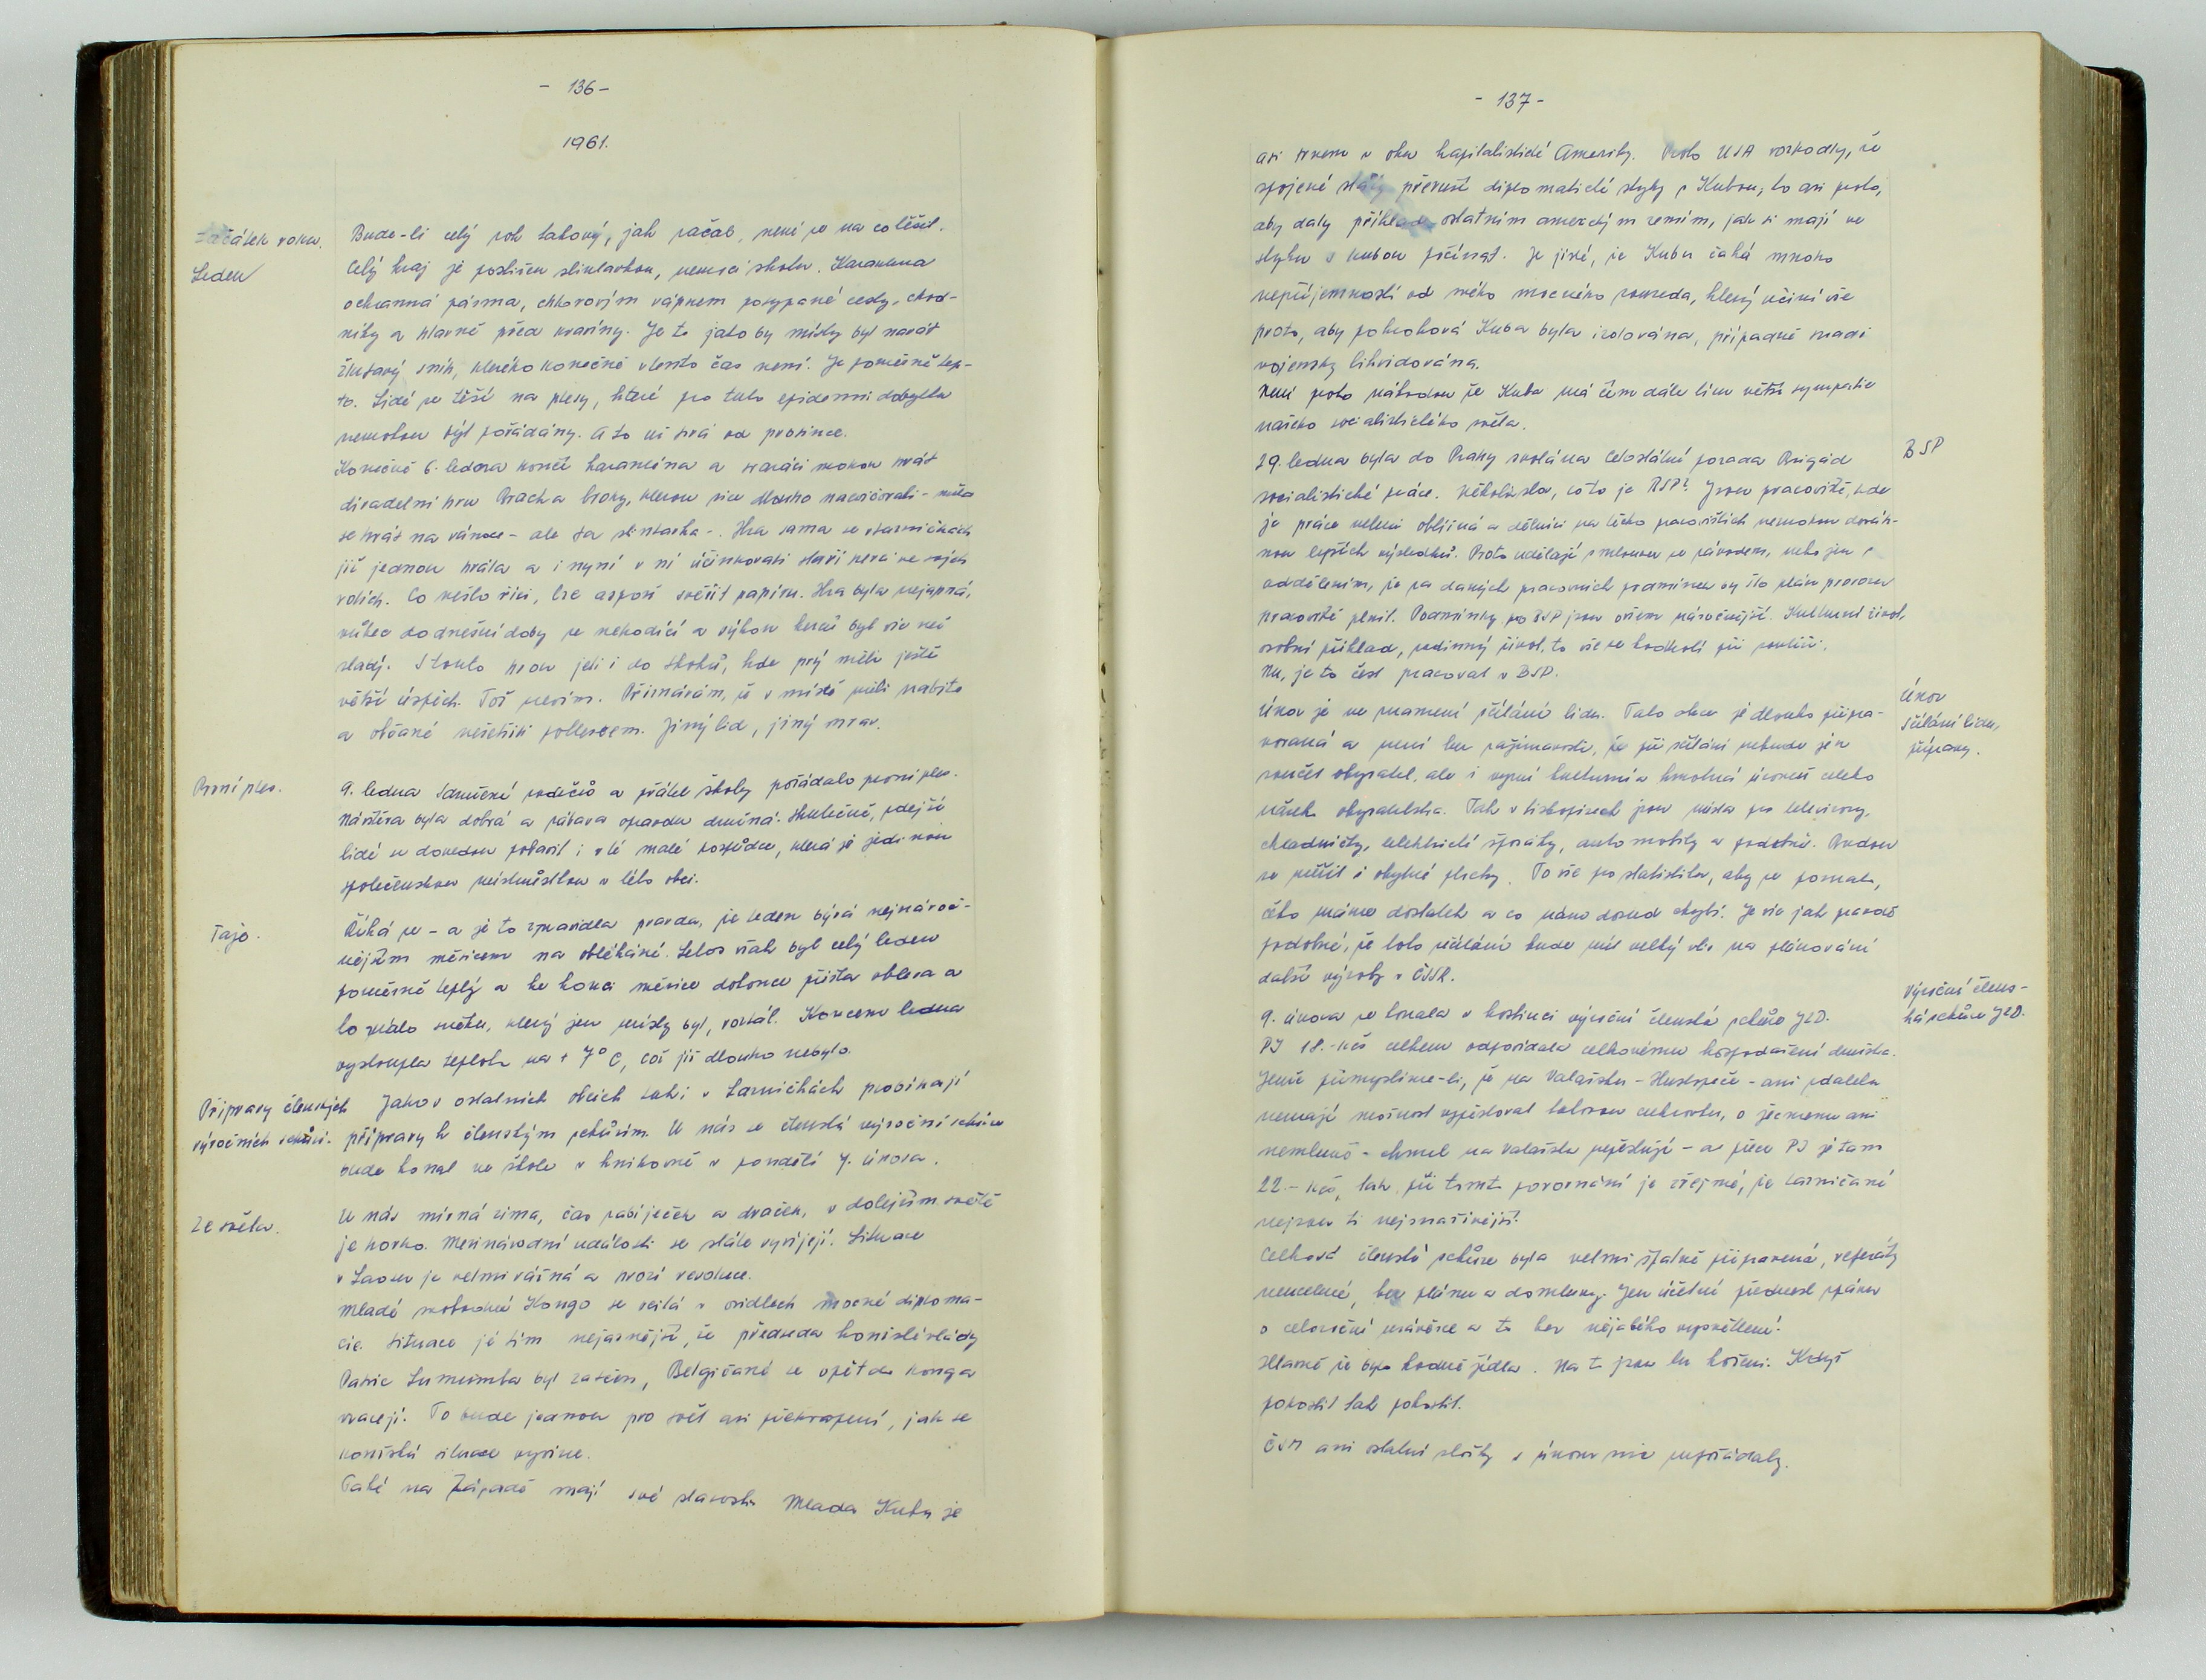 - 136 -
1961.
Začátek roku.
Leden
Bude-li celý rok takový, jak začal, není se na co těšit.
Celý kraj je postižen slintavkou, nemocí skotu. Karanténa
ochranná pásma, chlorovým vápnem posypané cesty, chod-
níky a hlavně před kravíny. Je to jako by místy byl navát
žlutavý sníh, kterého konečně v tento čas není. Je poměrně tep-
lo. Lidé se těší na plesy, které pro tuto epidemii dobytka
nemohou být pořádány. A to už trvá od prosince.
Konečně 6. ledna končí karanténa a svazáci mohou hrát
divadelní hru Prach a broky, kterou sice dlouho nacvičovali - měla
se hrát na vánoce - ale ta slintavka -. Hra sama se v Žarničkách
již jednou hrála a i nyní v ní účinkovali staří herci ve svých
rolích. Co nešlo říci, lze aspoň svěřit papíru. Hra byla nejapná,
vůbec do dnešní doby se nehodící a výkon herců byl víc než
slabý. S touto hrou jeli i do Skoků, kde prý měli ještě
větší úspěch. Toť nevím. Přiznávám, že v místě měli nabito
a občané nešetřili potleskem. Jiný lid, jiný mrav.
První ples.
9. ledna Sdružení rodičů a přátel školy pořádalo první ples.
Návštěva byla dobrá a zábava opravdu družná. Skutečně, zdejší
lidé se dovedou pobavit i v té malé hospůdce, která je jedinou
společenskou místností v této obci.
Tají.
Říká se - a je to zpravidla pravda, že leden bývá nejnároč-
nějším měsícem na oblékání. Letos však byl celý leden
poměrně teplý a ke konci měsíce dokonce přišla obleva a
to málo sněhu, který jen místy byl, roztál. Koncem ledna
vystoupla teplota na + 7° C, což již dlouho nebylo.
Přípravy členských
výročních schůzí.
Jako v ostatních obcích tak i v Žarničkách probíhají
přípravy k členským schůzím. U nás se členská výroční schůze
bude konat ve škole v knihovně v pondělí 7. února.
Ze světa.
U nás mírná zima, čas zabíječek a draček, v dolejším světě
je horko. Mezinárodní události se stále vyvíjejí. Situace
v Laosu je velmi vážná a hrozí revoluce.
Mladé svobodné Kongo se ocitá v osidlech mocné diploma-
cie. Situace je tím nejasnější, že předseda konžské vlády
Patric Lumumba byl zatčen, Belgičané se opět do Konga
vracejí. To bude jednou pro svět asi překvapení, jak se
konžská situace vyvine.
Také na Západě mají své starosti. Mladá Kuba je
- 137 -
asi trnem v oku kapitalistické Ameriky. Proto USA rozhodly, že
spojené státy přeruší diplomatické styky s Kubou, to asi proto,
aby daly příklad ostatním americkým zemím, jak si mají ve
styku s Kubou počínat. Je jisté, že Kubu čeká mnoho
nepříjemností od svého mocného souseda, který učiní vše
proto, aby pokroková Kuba byla izolována, případně snad i
vojensky likvidována.
Není proto náhodou že Kuba má čím dále tím větší sympatie
našeho socialistického světa.
BSP
29. ledna byla do Prahy svolána celostátní porada Brigád
socialistické práce. Několik slov, co to je BSP? Jsou pracoviště, kde
je práce velmi obtížná a dělníci na těchto pracovištích nemohou dosáh-
nou lepších výsledků. Proto udělají smlouvu se závodem, nebo jen s
oddělením, že za daných pracovních podmínek by šlo plán provozu
pracoviště plnit. Podmínky pro BSP jsou ovšem náročnější. Kulturní život,
osobní příklad, rodinný život, to vše se hodnotí při soutěži.
Nu, je to čest pracovat v BSP.
Únor
Sčítání lidu,
přípravy.
Únor je ve znamení sčítání lidu. Tato akce je dlouho připra-
vovaná a není bez zajímavosti, že při sčítání nebude jen
součet obyvatel, ale i vyzní kulturní a hmotná úroveň celého
našeho obyvatelstva. Tak v tiskopisech jsou místa pro televizory,
chladničky, elektrické sporáky, automobily a podobně. Budou
se měřit i obytné plochy. To vše pro statistiku, aby se poznalo,
čeho máme dostatek a co nám dosud chybí. Je víc jak pravdě
podobné, že toto sčítání bude mít velký vliv na plánování
další výroby v ČSSR.
Výroční člens-
ká schůze JZD.
9. února se konala v hostinci výroční členská schůze JZD.
PJ 18.- Kčs celkem odpovídala celkovému hospodaření družstva.
Jenže přimyslíme-li, že na Valašsku - Hustopeče - ani zdaleka
nemají možnost vypěstovat takovou cukrovku, o ječmenu ani
nemluvě - chmel na Valašsku nepěstují - a přece PJ je tam
22.- Kčs, tak při tomto porovnání je zřejmé, že žarničané
nejsou ti nejsnaživější.
Celková členská schůze byla velmi špatně připravená, referáty
neucelené, bez plánu a domluvy. Jen účetní přednesl zprávu
o celoroční uzávěrce a to bez nějakého vysvětlení.
Hlavně že bylo hodně jídla. Na to jsou tu kořeni. Když
pohostit tak pohostit.
ČSM ani ostatní složky v únoru nic nepořádaly.